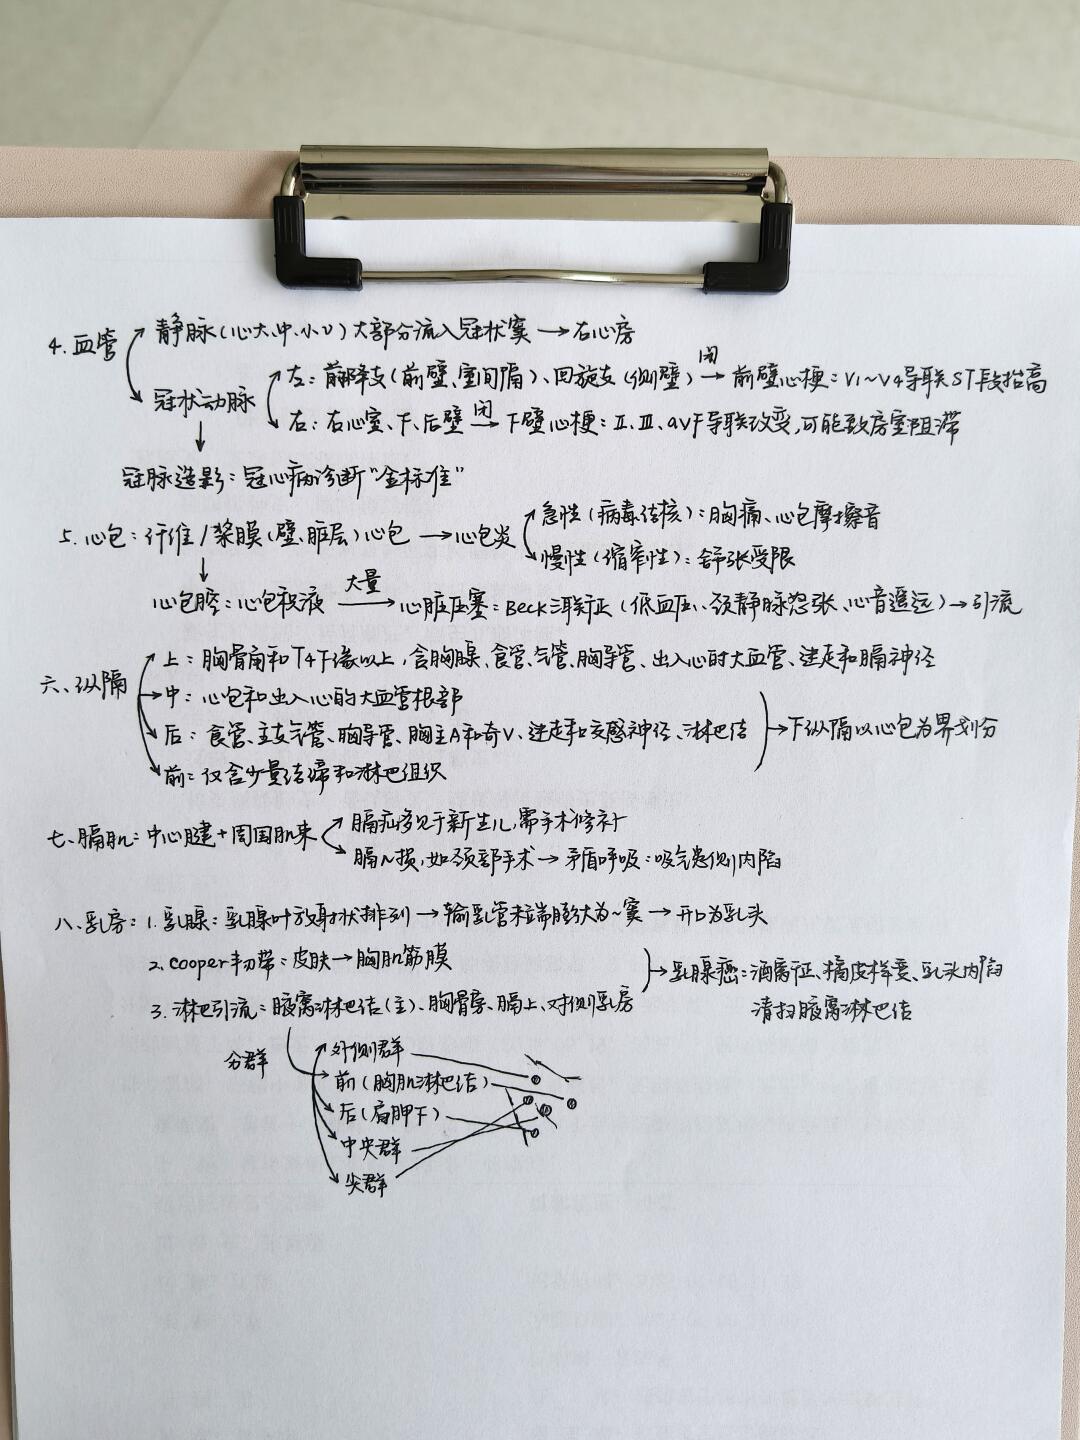 4.血管
静脉(心大、中、小V)大部分流入冠状窦→右心房
冠状动脉
左:前降支(前壁、室间隔)、回旋支(侧壁)闭→前壁心梗:V1~V4导联ST段抬高
右:右心室、下、后壁闭→下壁心梗:Ⅱ、Ⅲ、aVF导联改变,可能致房室阻滞
冠脉造影:冠心病诊断"金标准"
5.心包:纤维/浆膜(壁、脏层)心包→心包炎
急性(病毒结核):胸痛、心包摩擦音
慢性(缩窄性):舒张受限
心包腔:心包积液大量→心脏压塞:Beck三联征(低血压、颈静脉怒张、心音遥远)→引流
六、纵隔
上:胸骨角和T4下缘以上,含胸腺、食管、气管、胸导管、出入心的大血管、迷走和膈神经
中:心包和出入心的大血管根部
后:食管、主支气管、胸导管、胸主A和奇V、迷走和交感神经、淋巴结
→下纵隔以心包为界划分
前:仅含少量结缔和淋巴组织
七、膈肌:中心腱+周围肌束
膈疝多见于新生儿,需手术修补
膈N损,如颈部手术→矛盾呼吸:吸气患侧内陷
八、乳房:1.乳腺:乳腺叶放射状排列→输乳管末端膨大为~窦→开口为乳头
2.cooper韧带:皮肤→胸肌筋膜
→乳腺癌:酒窝征、橘皮样变、乳头内陷
清扫腋窝淋巴结
3.淋巴引流:腋窝淋巴结(主)、胸骨旁、膈上、对侧乳房
分群
外侧群
前(胸肌淋巴结)
后(肩胛下)
中央群
尖群